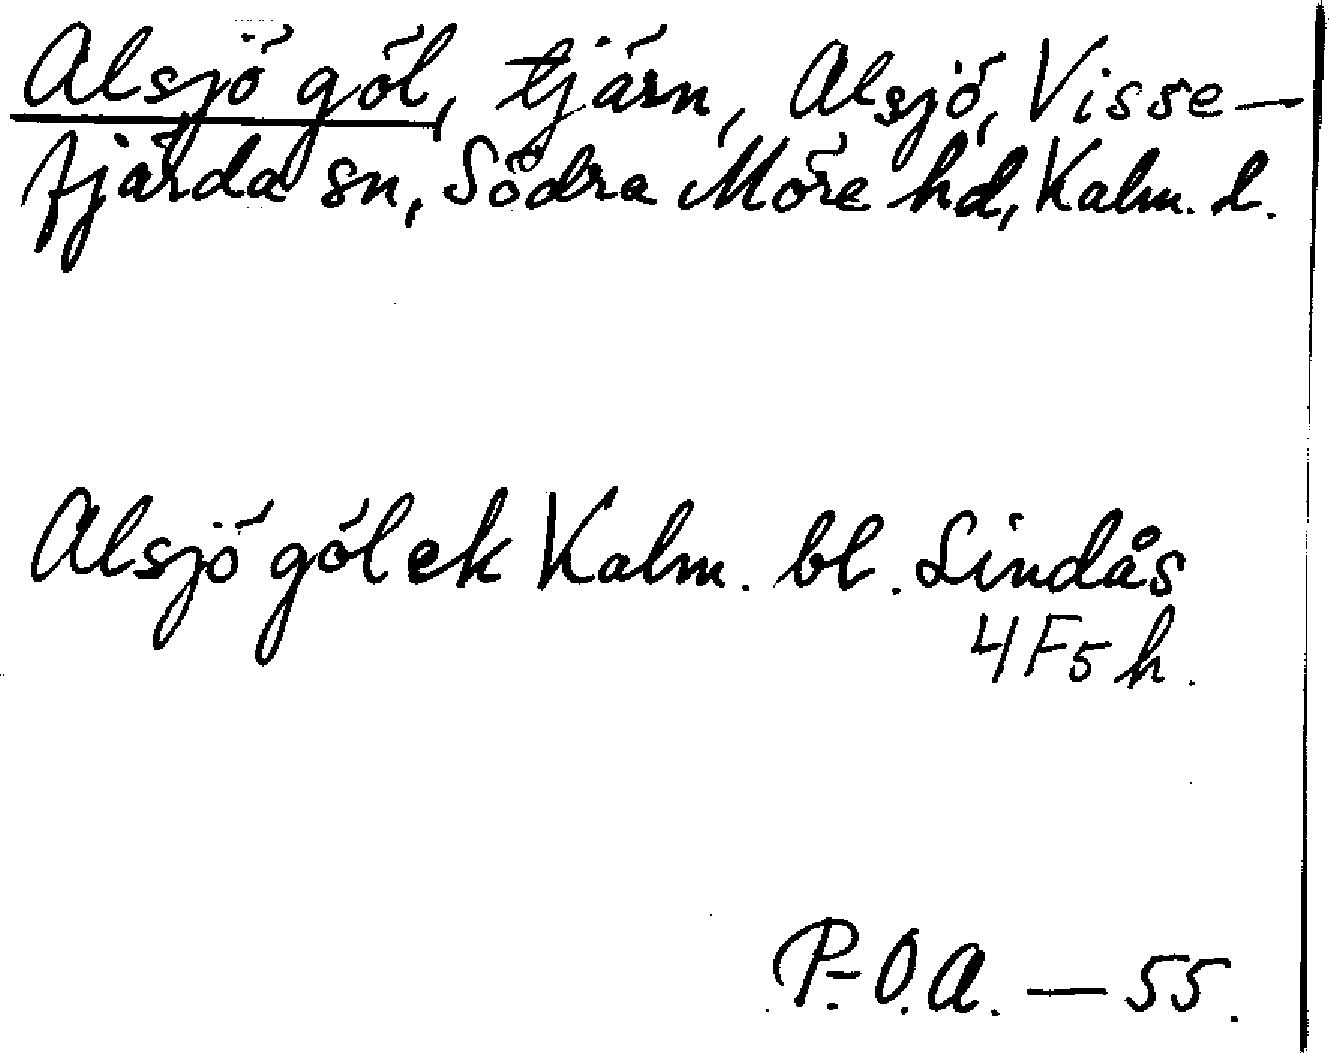 Alsjö göl, tjärn, Alsjö, Visse-
fjärda sn, Södra Möre hd, Kalm. l.
Alsjö göl ek Kalm. bl. Lindås
4F5h.
P.-O.A. — 55.